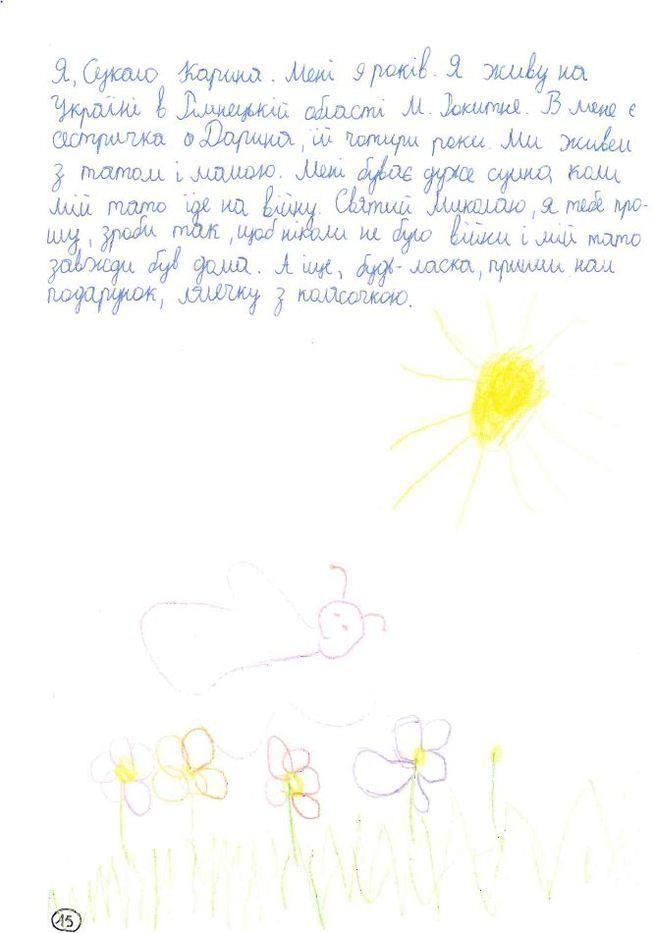 Я, Сукало Карина. Мені 9 років. Я живу на
Україні в області М. Рокитне. В мене є
сестричка Дарина, їй чотири роки. Ми живем
з татом і мамою. Мені буває дуже сумно, коли
мій тато їде на війну. Святий Миколаю, я тебе про-
шу, зроби так, щоб ніколи не було війни і мій тато
завжди був дома. А іще, будь-ласка, пришли нам
подарунок, лялечку з колясочкою.
15